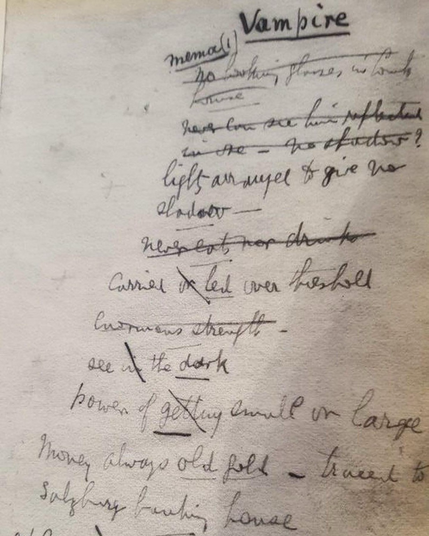 Vampire
memo (1)
no looking glasses in Count's
house
never can see him reflected
in one – no shadow?
lights arranged to give no
shadow –
never eats nor drinks
Carried or led over threshold
Enormous strength –
see in the dark
power of getting small or large
Money always old gold – traced to
Salzburg banking house